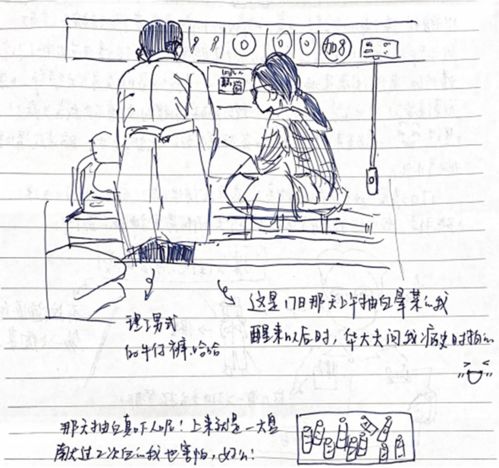 了男式
的牛仔裤,哈哈
这是17日那天上午抽血晕菜的我
醒来以后时,华大夫问我病史时拍的
那天抽血真吓人呢!上来就是一大
献过2次血的我也害怕,好么!